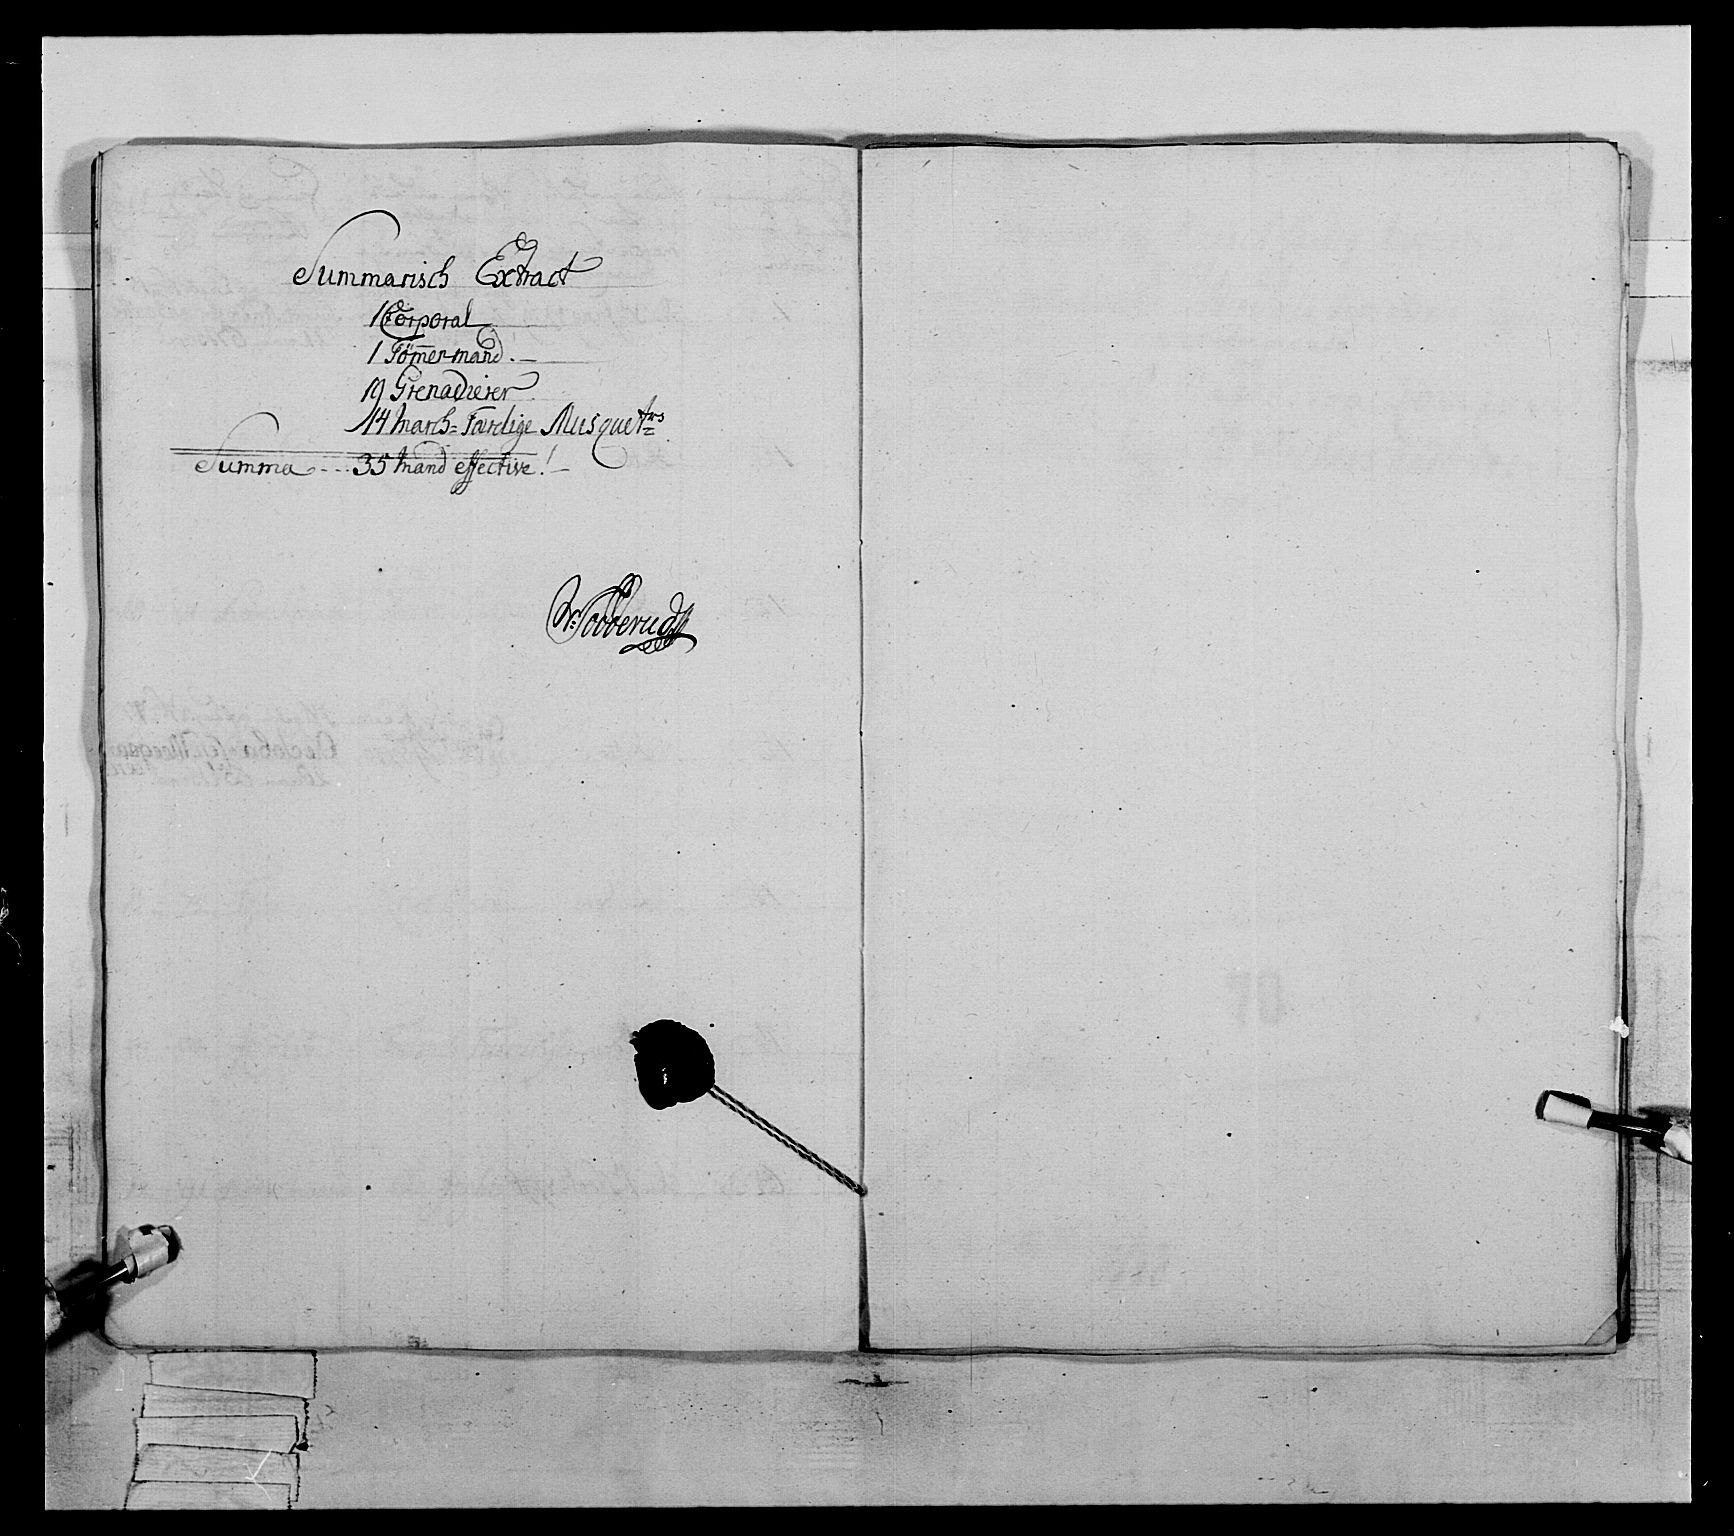 Summarisch Extract
1 Corporal
1 Tömermand.
19 Grenaderer
14 March-Færdige Musquetrs
Summa - - - 35 Mand effective!